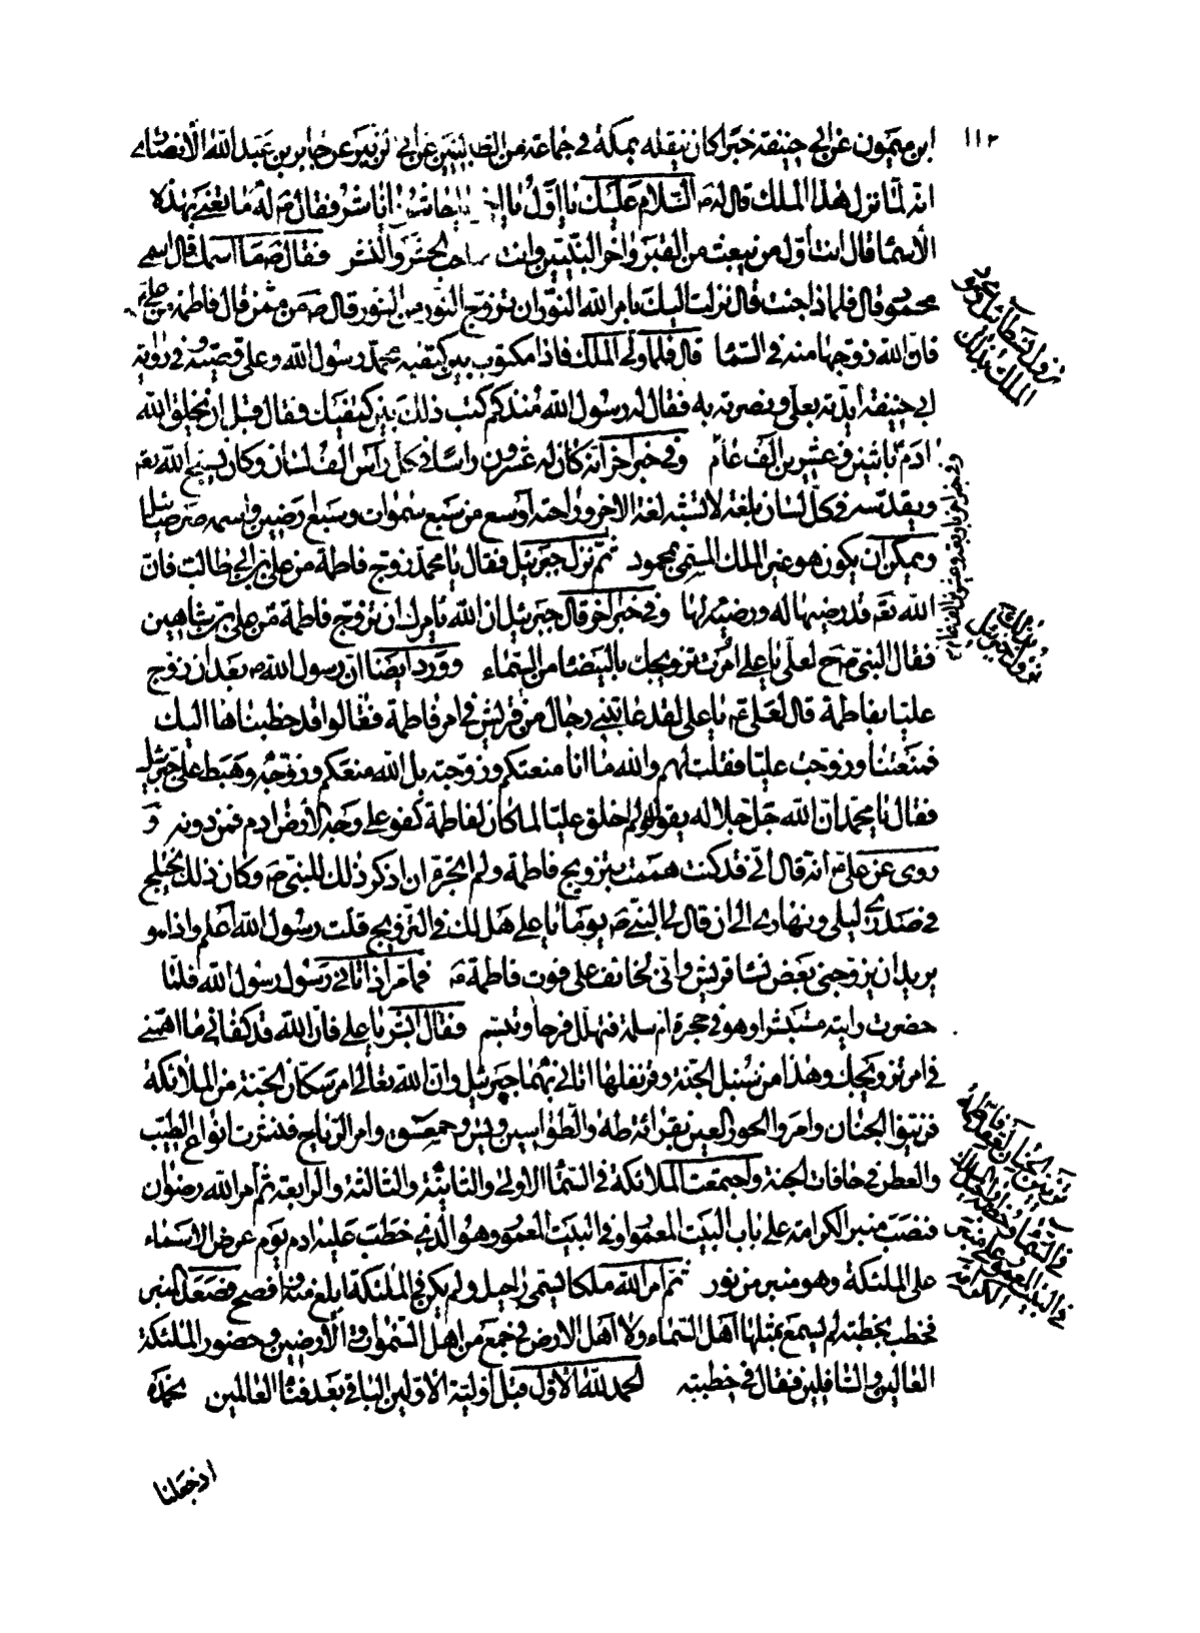 ١١٢
ابن ميمون عن ابي حنيفة خبرا كان ينقله بمكة في جماعة من الطالبيين عن ابي الزبير عن جابر بن عبد الله الانصاري
انه لما نزل هذا الملك قال له ص السلام عليك يا اول يا حاشر يا ناشر فقال ص له ما تعني بهذه
الأسماء قال انت اول من يبعث من القبر واخر النبيين وانت صاحب الحشر والنشر فقال ص ما اسمك قال اسمي
محمود قال فلماذا جئت قال نزلت اليك بامر الله النور ان تزوج النور من النور قال ص من ممن قال فاطمة من علي
فان الله زوجها منه في السماء قال فلما ولى الملك فاذا مكتوب بين كتفيه محمد رسول الله وعلي وصيه وفي رواية
ابي حنيفة ايدته بعلي ونصرته به فقال له رسول الله منذ كم كتب ذلك بين كتفيك فقال قبل ان يخلق الله
ادم باثنين وعشرين الف عام وفي خبر اخر انه كان له عشرون راسا في كل راس الف لسان وكان يسبح الله تعه
ويقدسه في كل لسان بلغة لا تشبه لغة الاخر وراحته اوسع من سبع سموات وسبع ارضين واسمه صرصائيل
ويمكن ان يكون هو غير الملك المسمى بمحمود ثم نزل جبرئيل فقال يا محمد زوج فاطمة من علي بن ابي طالب فان
الله تعه قد رضيها له ورضيه لها وفي خبر اخر قال جبرئيل ان الله يامرك ان تزوج فاطمة من علي
فقال النبي ص لعلي يا علي امرت تزويجك بالبيضاء من السماء وورد ايضا ان رسول الله ص بعد ان زوج
عليا بفاطمة قال لعلي ع يا علي لقد عاتبني رجال من قريش في امر فاطمة فقالوا قد خطبناها اليك
فمنعتنا وزوجت عليا فقلت لهم والله ما انا منعتكم وزوجته بل الله منعكم وزوجه وهبط علي جبرئيل
فقال يا محمد ان الله جل جلاله يقول لو لم اخلق عليا لما كان لفاطمة كفو على وجه الأرض ادم فمن دونه و
روى عن علي ع انه قال اني قد كنت هممت بتزويج فاطمة ولم اتجرء ان اذكر ذلك للنبي ص وكان ذلك يختلج
في صدري ليلي ونهاري الى ان قال لي النبي ص يوما يا علي هل لك في التزويج قلت رسول الله اعلم واذا هو
يريد ان يزوجني بعض نساء قريش واني لخائف على فوت فاطمة ص فما مر اذ اتاني رسول رسول الله فلما
حضرت رايته مستبشرا وهو في حجرة ام سلمة فتهلل فرحا وتبسم فقال ابشر يا علي فان الله قد كفاني ما اهمني
في امر تزويجك وهذا من سنبل الجنة وقرنفلها اتاني بهما جبرئيل وان الله تعالى امر سكان الجنة من الملائكة
فزينوا الجنان وامروا الحور العين بقرائة طه والطواسين ويس وحمعسق وامر الرياح فنشرت انواع الطيب
والعطر في حافات الجنة واجتمعت الملائكة في السماء الاولى والثانية والثالثة والرابعة ثم امر الله رضوان
فنصب منبر الكرامة على باب البيت المعمور وفي البيت المعمور وهو الذي خطب عليه ادم يوم عرض الاسماء
على الملئكة وهو منبر من نور ثم امر الله ملكا يسمى راحيل ولم يكن في الملئكة ابلغ منه وافصح فصعد المنبر
فخطب بخطبة لم يسمع بمثلها اهل السماء ولا اهل الارض في جمع من اهل السموات والأرضين وحضور الملئكة
العالين والسافلين فقال في خطبته الحمد لله الاول قبل اولية الاولين الباقي بعد فناء العالمين نحمده
اذ جعلنا
نزول
الملك بذلك
نزول جبرئيل
تزيين الجنان لفاطمة
في البيت المعمور على منبر
الكرامة